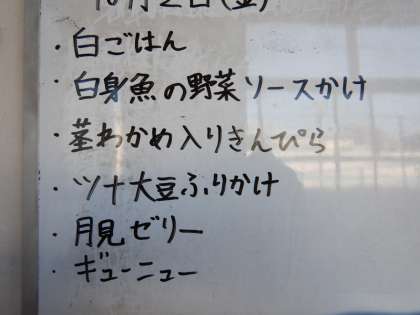 10月2日(金)
・白ごはん
・白身魚の野菜ソースかけ
・茎わかめ入りきんぴら
・ツナ大豆ふりかけ
・月見ゼリー
・ギューニュー